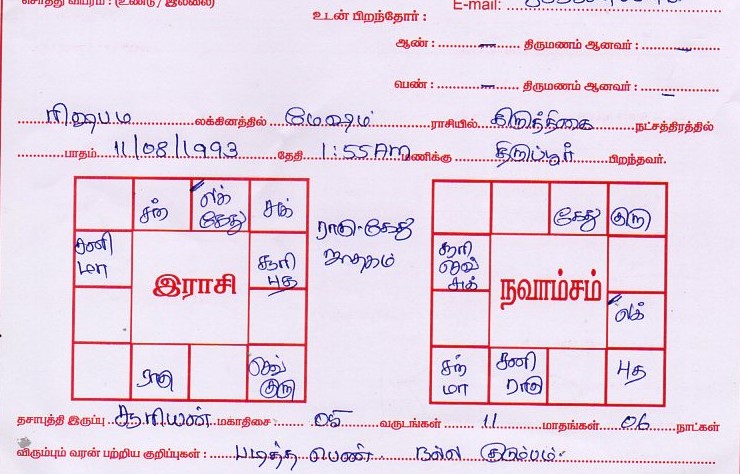 சொத்து விபரம் : (உண்டு / இல்லை)
E-mail:
உடன் பிறந்தோர் :
ஆண் : – திருமணம் ஆனவர் : –
பெண் : – திருமணம் ஆனவர் : –
ரிஷபம் லக்கினத்தில் மேஷம் ராசியில் கிருத்திகை நட்சத்திரத்தில்
பாதம் 11/08/1993 தேதி 1:55AM மணிக்கு திருப்பூர் பிறந்தவர்.
சந் லக் கேது சுக்
சனி மா
சூரி புத
இராசி
ராகு செவ் குரு
ராகு-கேது ஜாதகம்
கேது குரு
சூரி செவ் சுக்
நவாம்சம்
லக்
சந் மா சனி ராகு புத
தசாபுத்தி இருப்பு சூரியன் மகாதிசை 05 வருடங்கள் 11 மாதங்கள் 06 நாட்கள்
விரும்பும் வரன் பற்றிய குறிப்புகள் : படித்த பெண் நல்ல குடும்பம்.